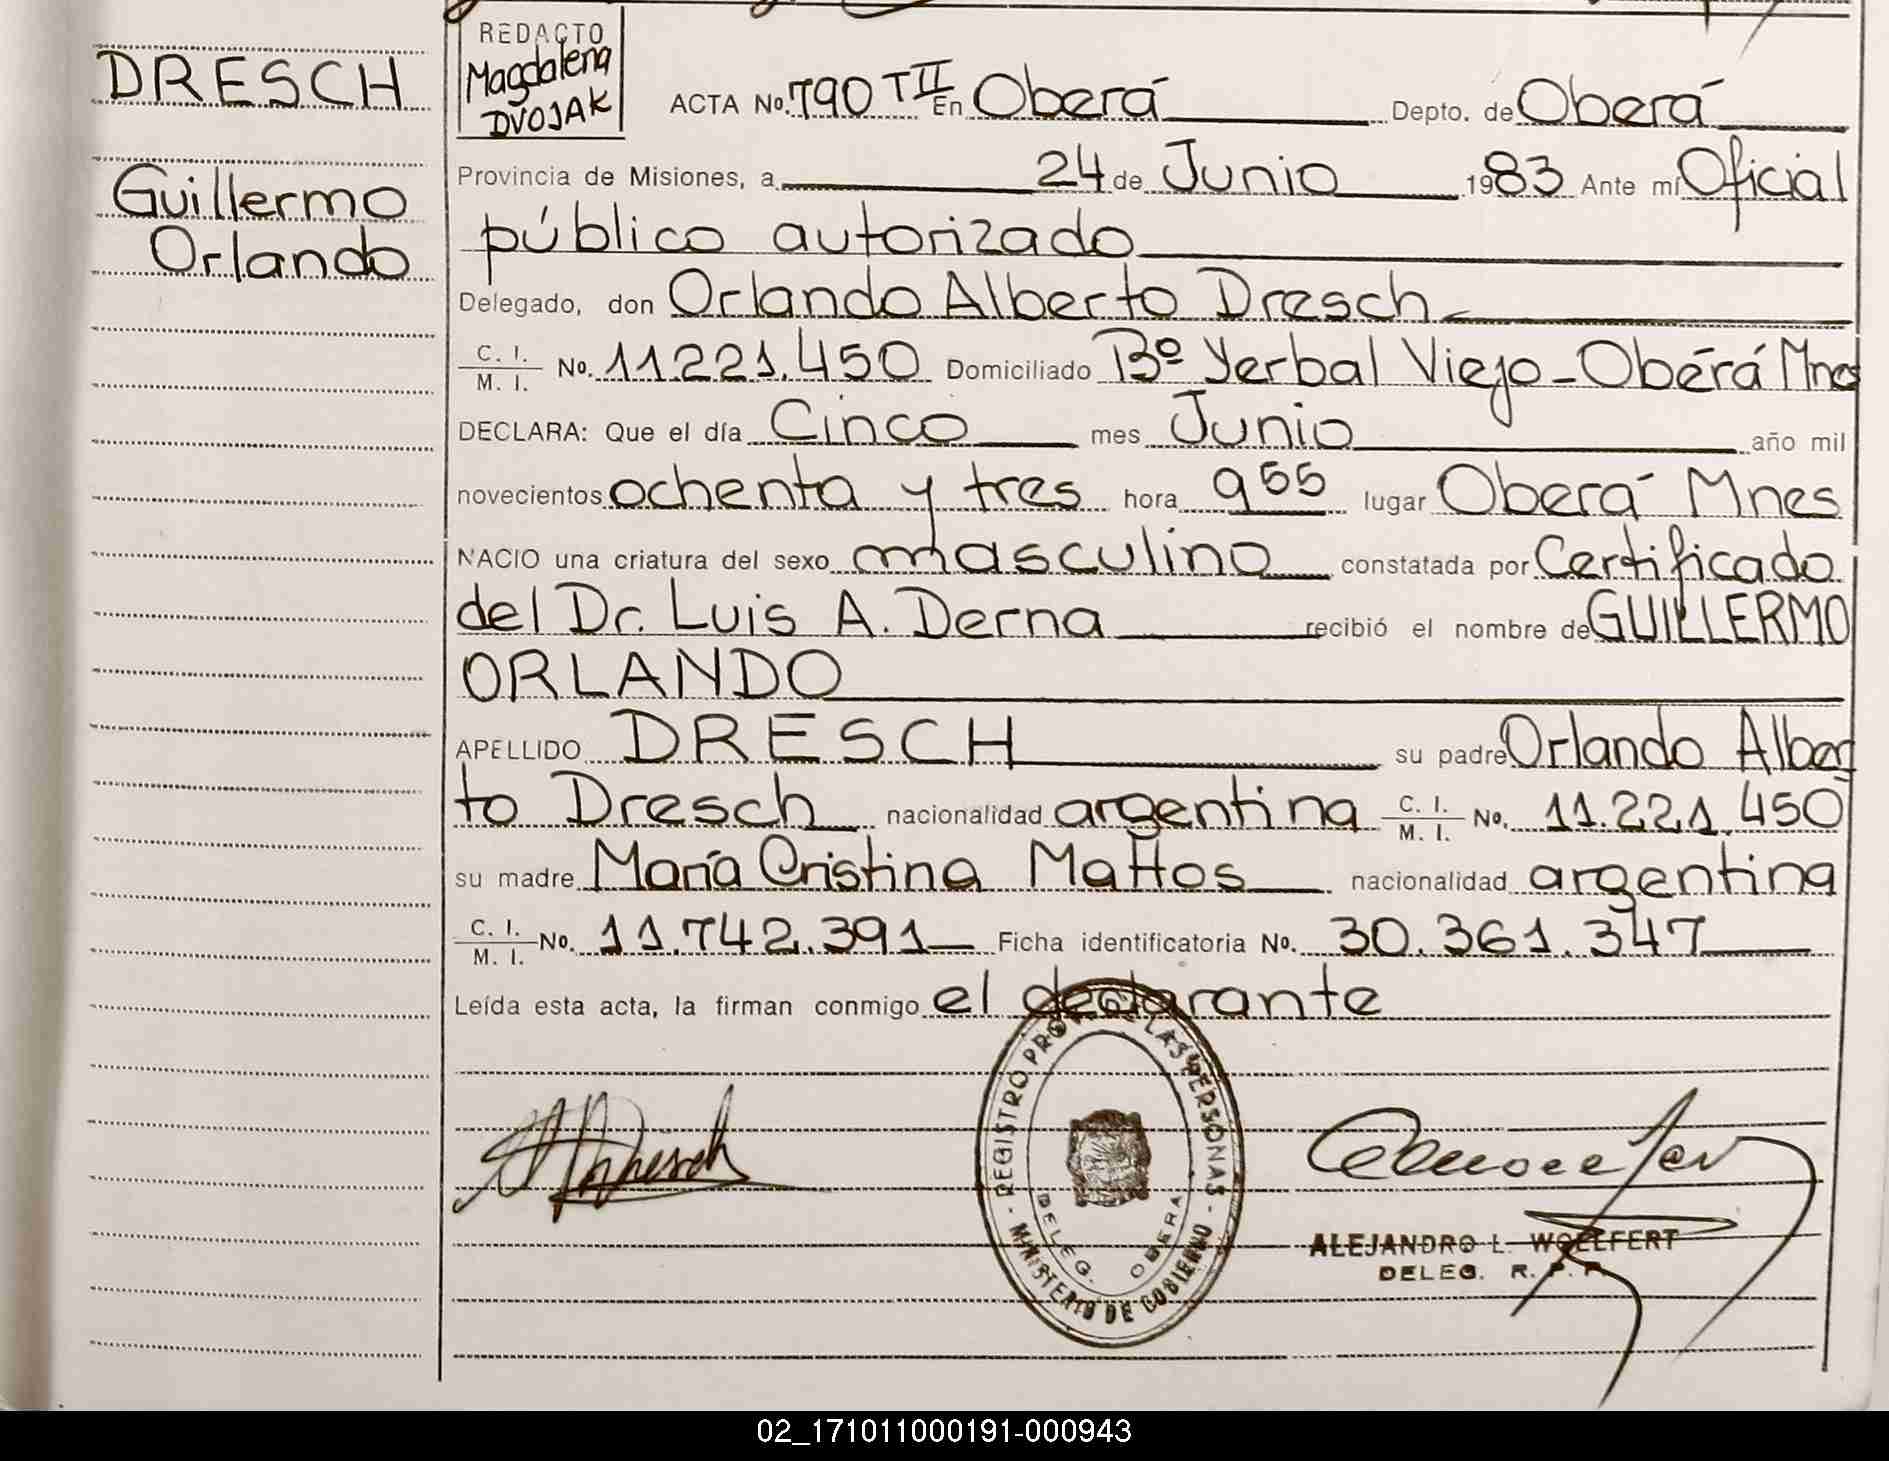 DRESCH
Guillermo
Orlando
REDACTO
Magdalena
DVOJAK
ACTA No. 790 T II En Oberá Depto. de Oberá
Provincia de Misiones, a 24 de Junio 1983 Ante mí Oficial
público autorizado
Delegado, don Orlando Alberto Dresch
C. I. / M. I. No. 11.221.450 Domiciliado Bº Yerbal Viejo - Oberá Mnes
DECLARA: Que el día Cinco mes Junio año mil
novecientos ochenta y tres hora 9 55 lugar Oberá Mnes
NACIO una criatura del sexo masculino constatada por Certificado
del Dr. Luis A. Derna recibió el nombre de GUILLERMO
ORLANDO
APELLIDO DRESCH su padre Orlando Alber
to Dresch nacionalidad argentina C. I. / M. I. No. 11.221.450
su madre María Cristina Mattos nacionalidad argentina
C. I. / M. I. No. 11.742.391 Ficha identificatoria No. 30.361.347
Leída esta acta, la firman conmigo el declarante
REGISTRO PROV. DE LAS PERSONAS
- MINISTERIO DE GOBIERNO -
DELEG. OBERA
ALEJANDRO L. WOELFERT
DELEG. R. P. P.
02_171011000191-000943